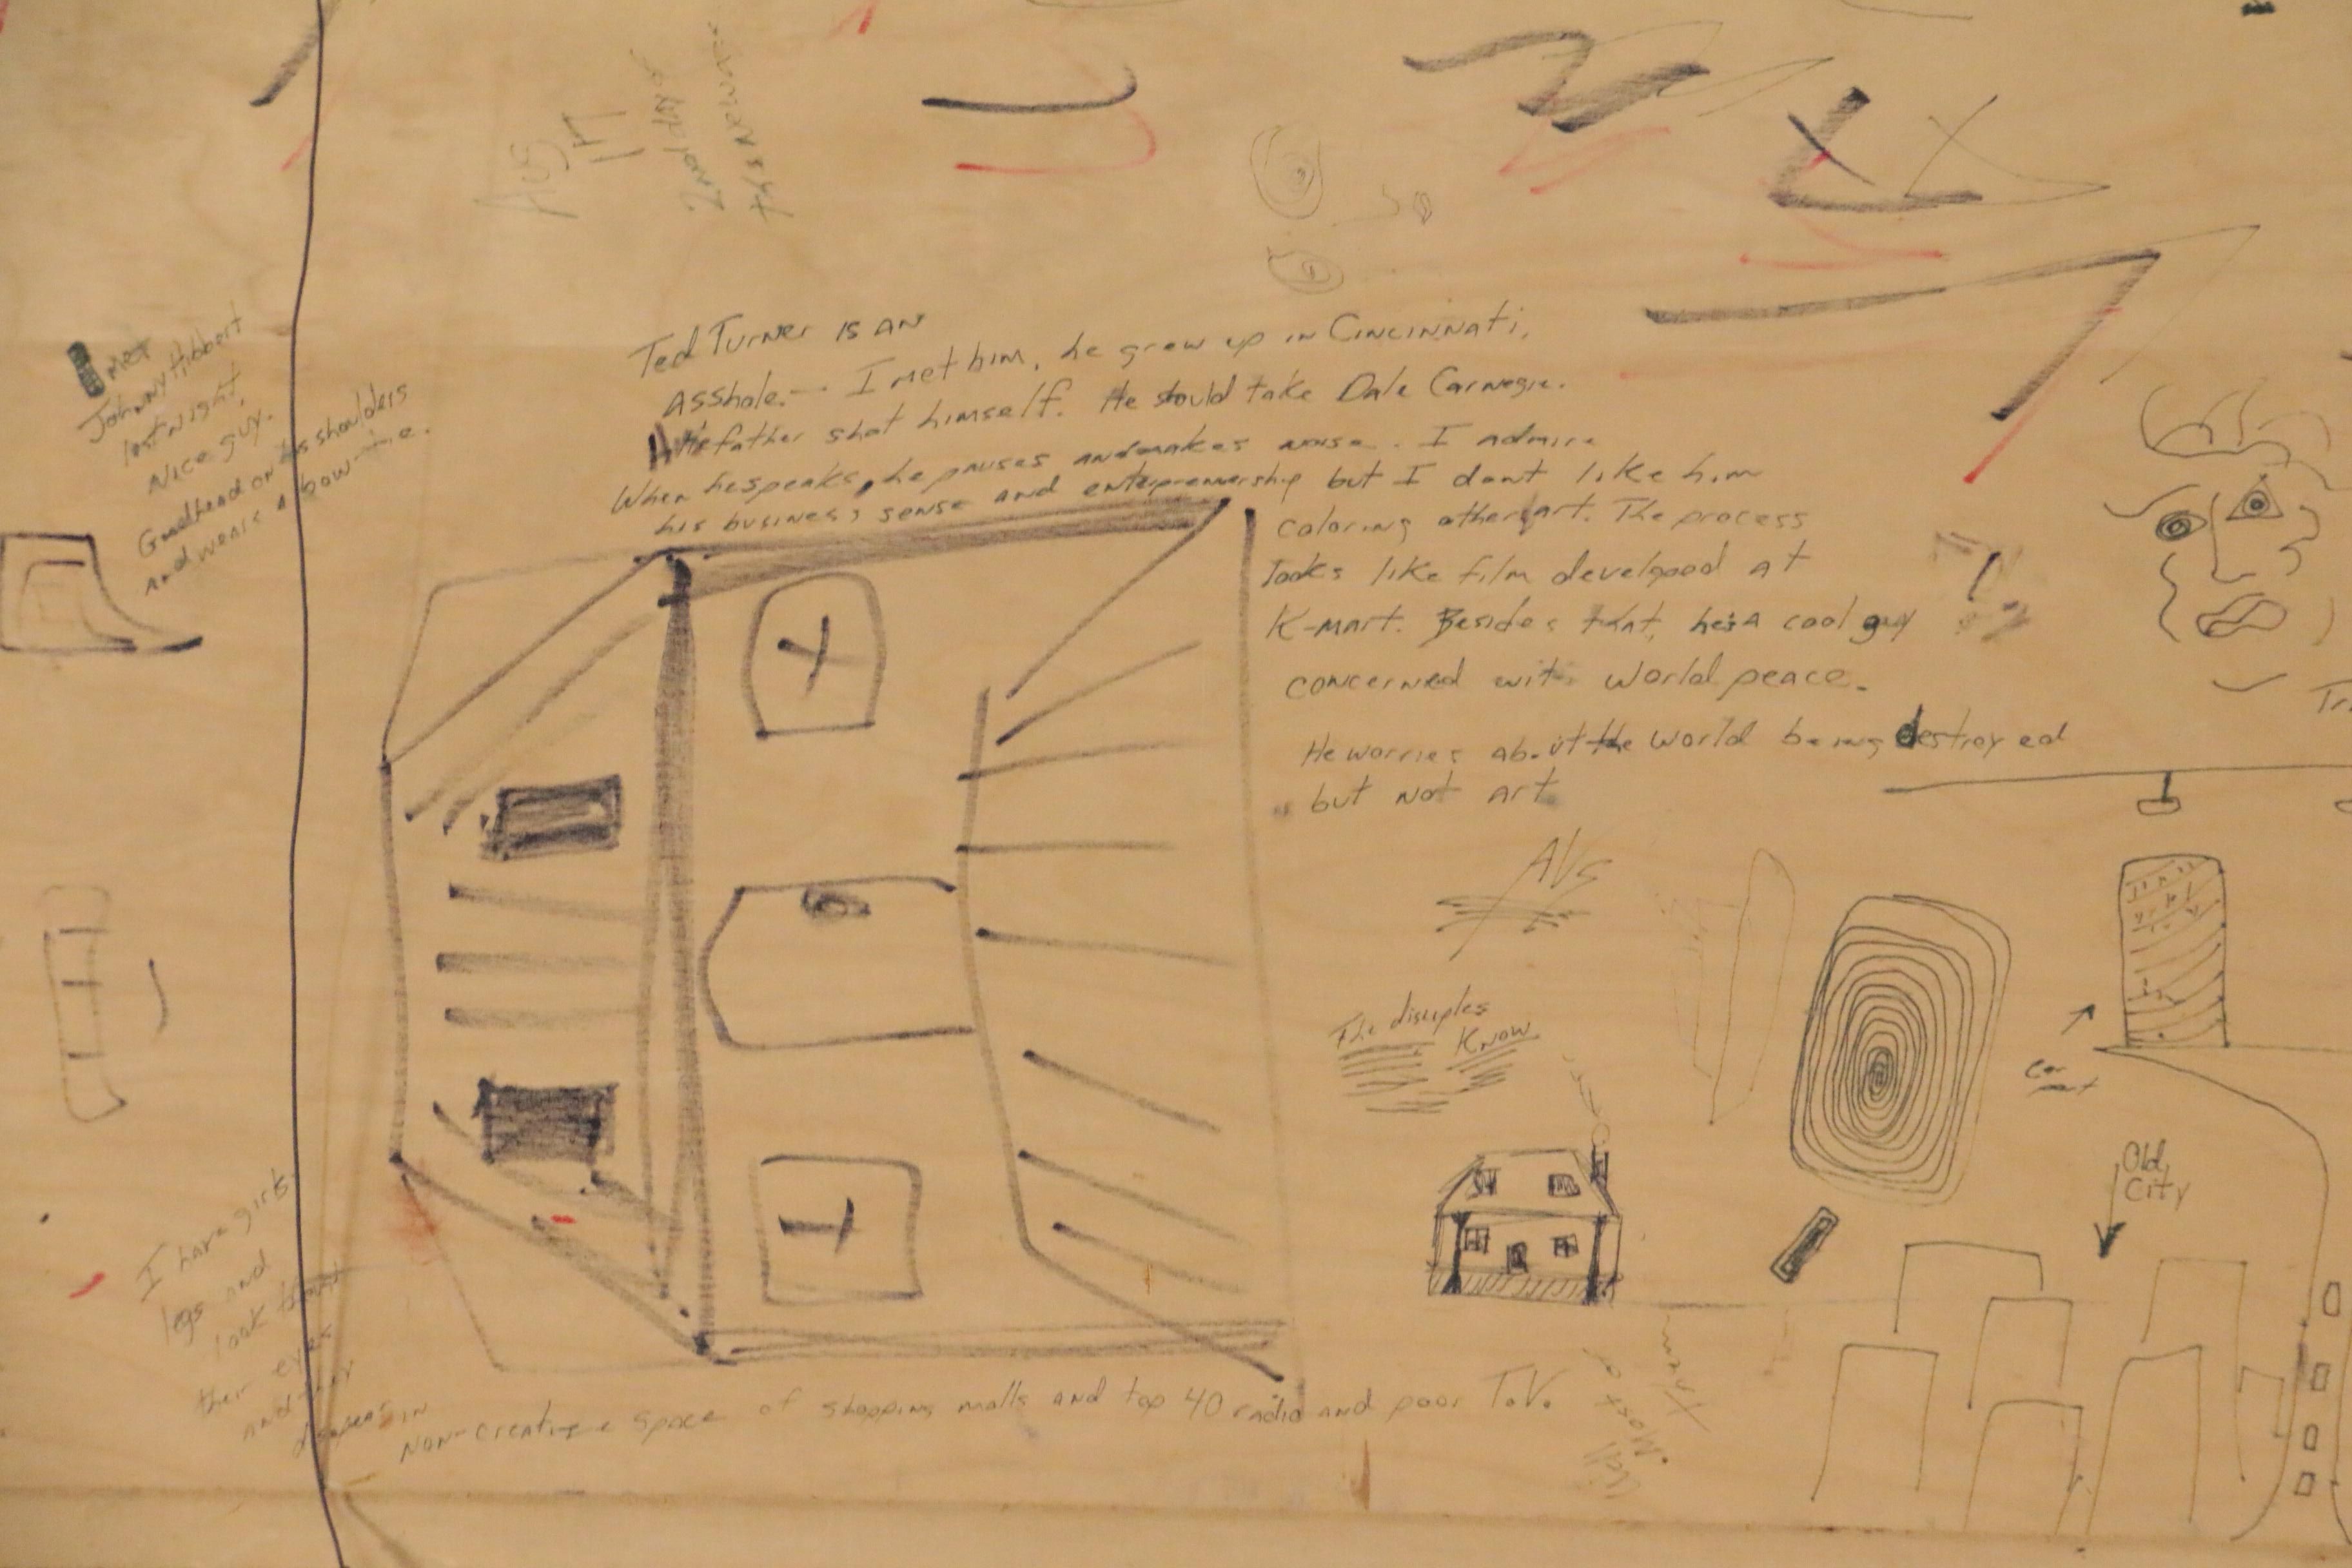 Ted Turner is an
Asshole. — I met him, he grew up in Cincinnati,
His father shot himself. He should take Dale Carnegie.
When he speaks, he pauses and makes noise. I admire
his business sense and enteprenuership but I dont like him
coloring other art. The process
looks like film develpoed at
K-mart. Besides that, he's a cool guy
concerned with world peace.
He worries about the world being destroyed
but not art
I met
Johnny Hibbert
last night,
Nice guy.
Good head on his shoulders
and wears a bow-tie.
Aug
17
AVS
The disciples
Know
Car
Old
City
I have girls
legs and
look
their eyes
and
disapear in
non-creative space of shopping malls and top 40 radio and poor T.V.
Call
Most of